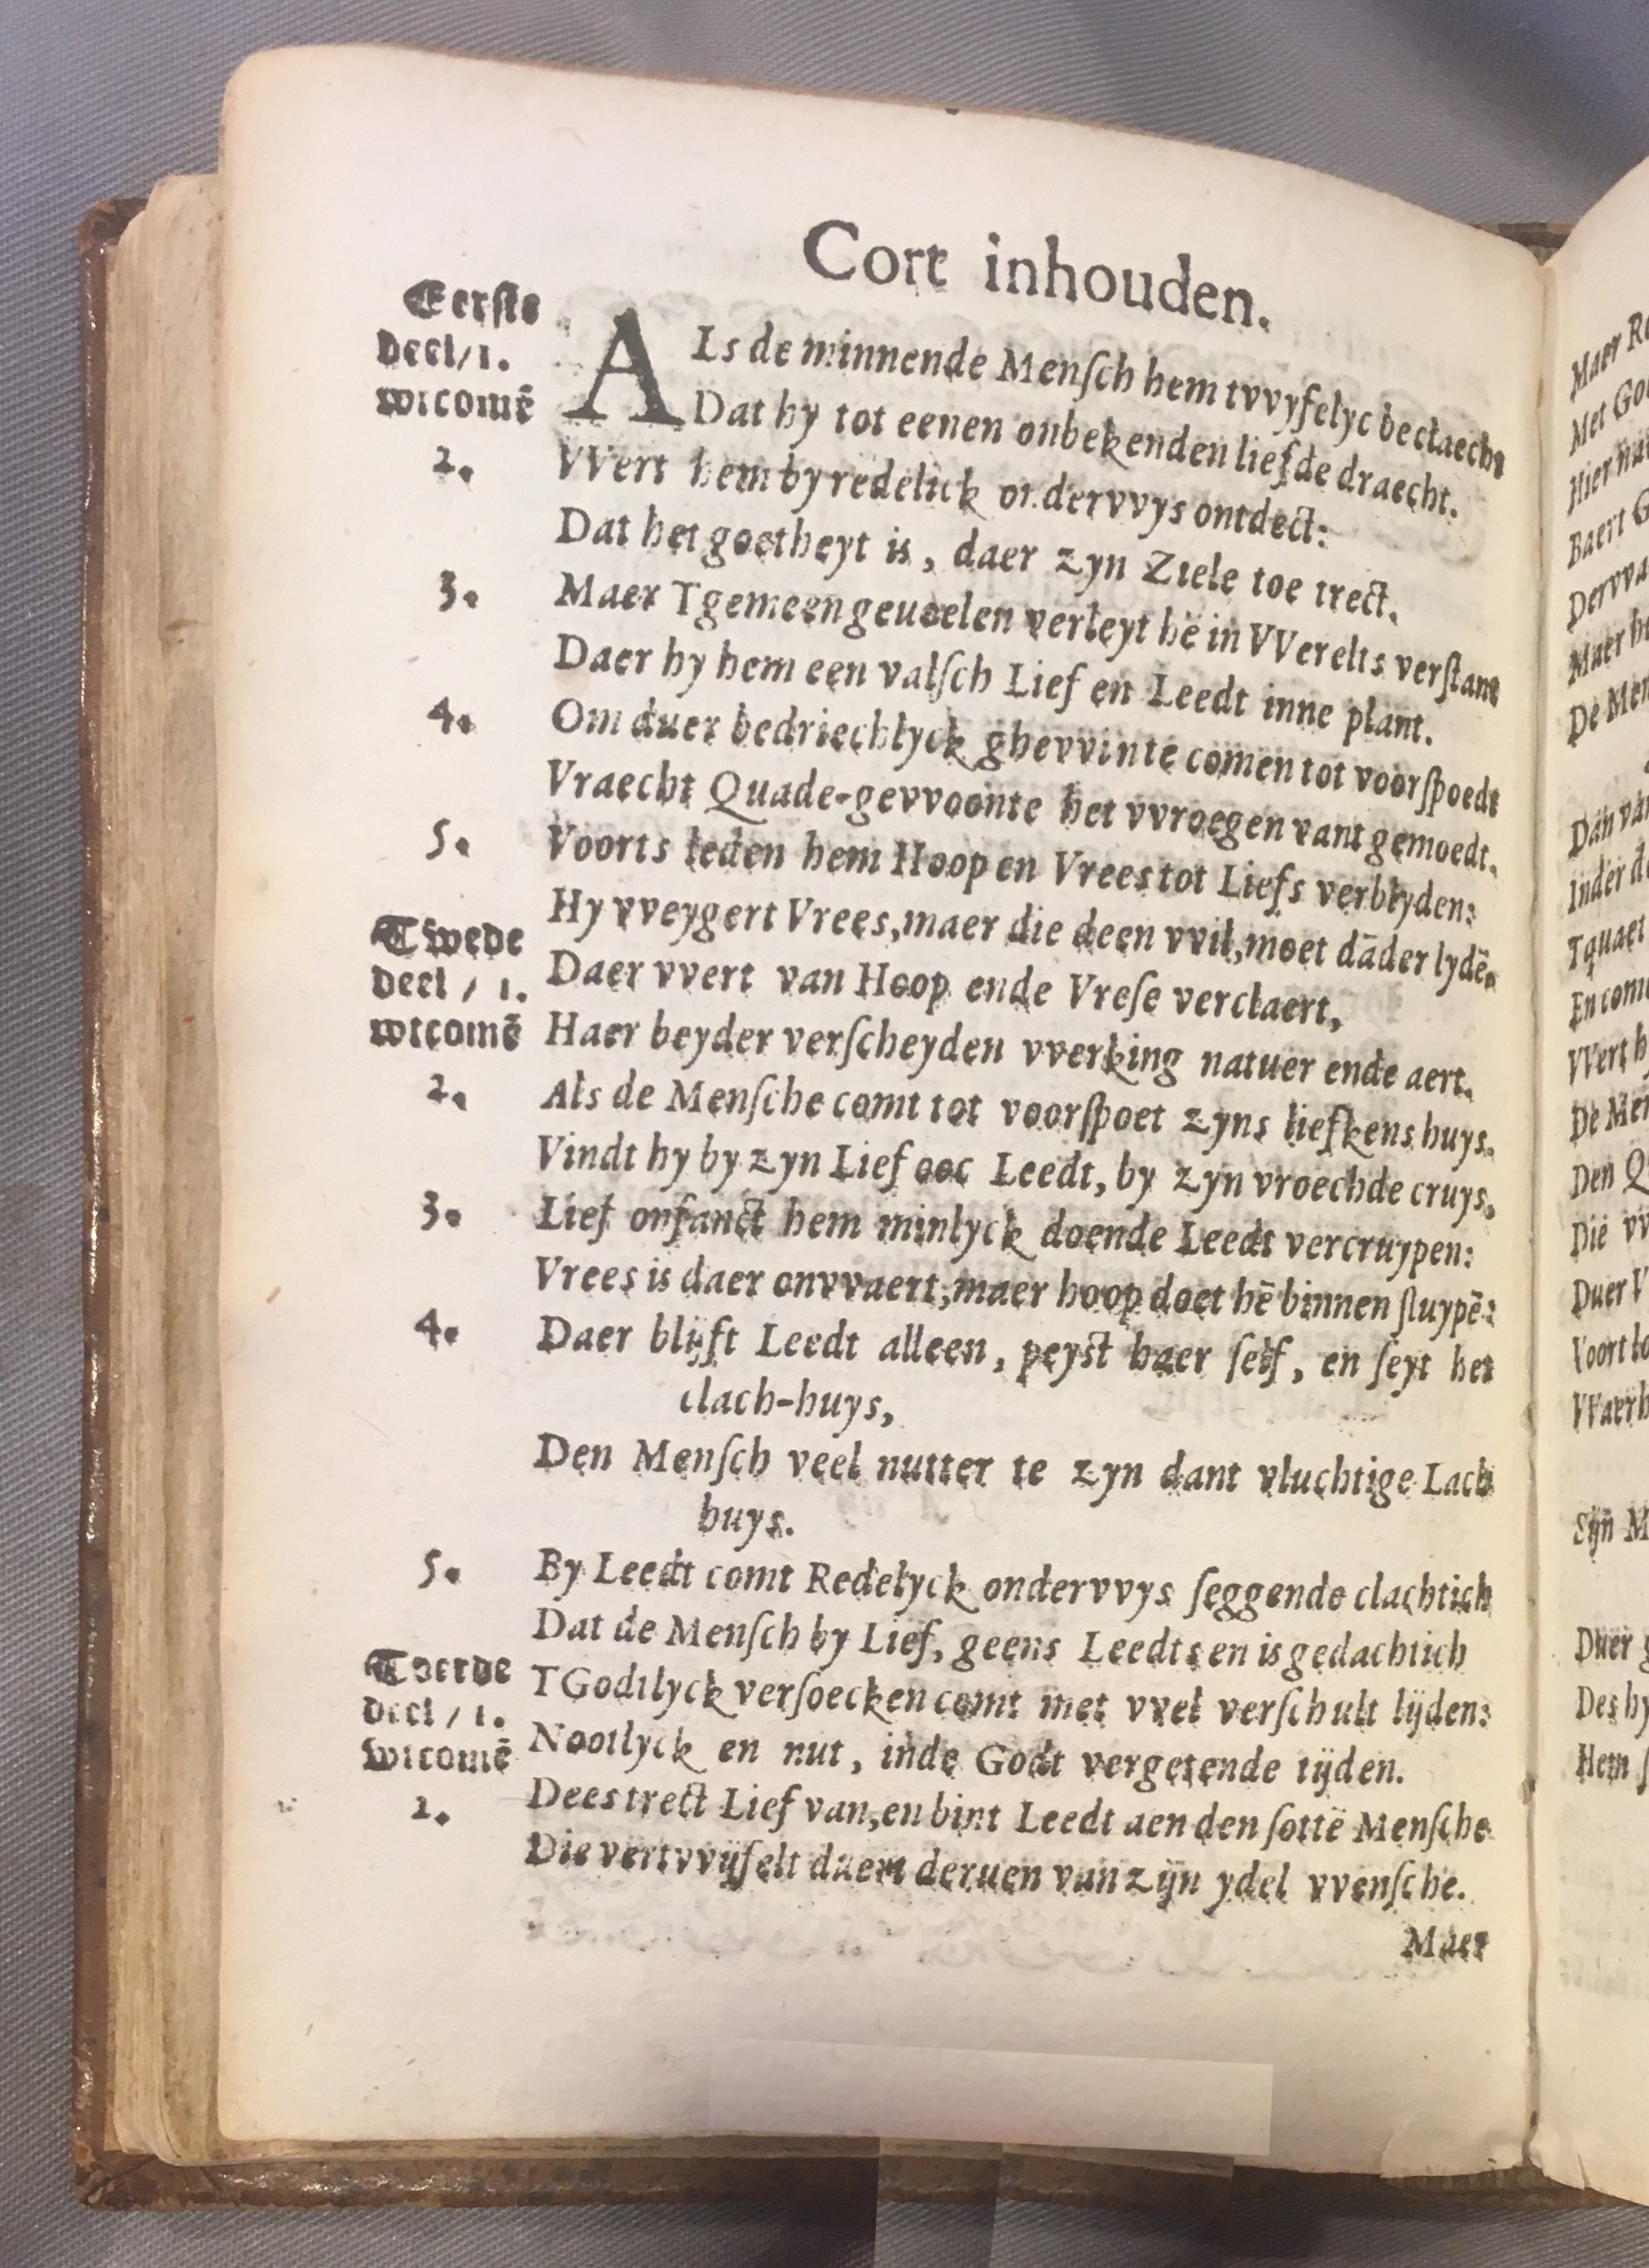 Cort inhouden.
Eerste
Deel/1.
wtcomē
ALs de minnende Menſch hem tvvyfelyc beclaecht
Dat hy tot eenen onbekenden liefde draecht.
2. VVert hem by redelick ondervvys ontdect:
Dat het goetheyt is, daer zyn Ziele toe trect.
3. Maer Tgemeen geuoelen verleyt hē in VVerelts verſtant
Daer hy hem een valſch Lief en Leedt inne plant.
4. Om duer bedriechlyck ghevvinte comen tot voorſpoedt
Vraecht Quade-gevvoonte het vvroegen vant gemoedt.
5. Voorts leden hem Hoop en Vrees tot Liefs verblyden:
Hy vveygert Vrees, maer die deen vvil, moet dāder lydē.
Twede
Deel / 1.
wtcomē
Daer vvert van Hoop ende Vreſe verclaert,
Haer beyder verſcheyden vverking natuer ende aert.
2. Als de Menſche comt tot voorſpoet zyns liefkens huys.
Vindt hy by zyn Lief ooc Leedt, by zyn vroechde cruys.
3. Lief onfanct hem minlyck doende Leedt vercruypen:
Vrees is daer onvvaert, maer hoop doet hē binnen ſluypē:
4. Daer blijft Leedt alleen, peyst haer ſelf, en ſeyt het
clach-huys,
Den Menſch veel nutter te zyn dant vluchtige Lach
huys.
5. By Leedt comt Redelyck ondervvys ſeggende clachtich
Dat de Menſch by Lief, geens Leedts en is gedachtich
Doerde
Deel / 1.
wtcomē
TGodtlyck verſoecken comt met vvel verſchult lijden:
Nootlyck en nut, inde Godt vergetende tijden.
2. Dees trect Lief van, en bint Leedt aen den ſottē Menſche
Die vertvvijfelt duemt deruen van zijn ydel vvenſche.
Maer